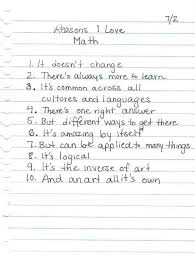 7/2
Reasons I Love
Math
1. It doesn't change
2. There's always more to learn
3. It's common across all
cultures and languages
4. There's one right answer
5. But different ways to get there
6. It's amazing by itself
7. But can be applied to many things
8. It's logical
9. It's the inverse of art
10. And an art all it's own